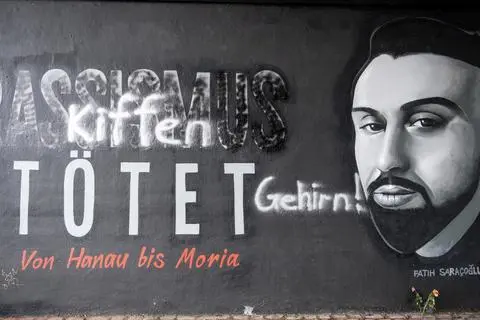 RASSISMUS
Kiffen
TÖTET
Gehirn!
Von Hanau bis Moria
FATIH SARAÇOĞLU